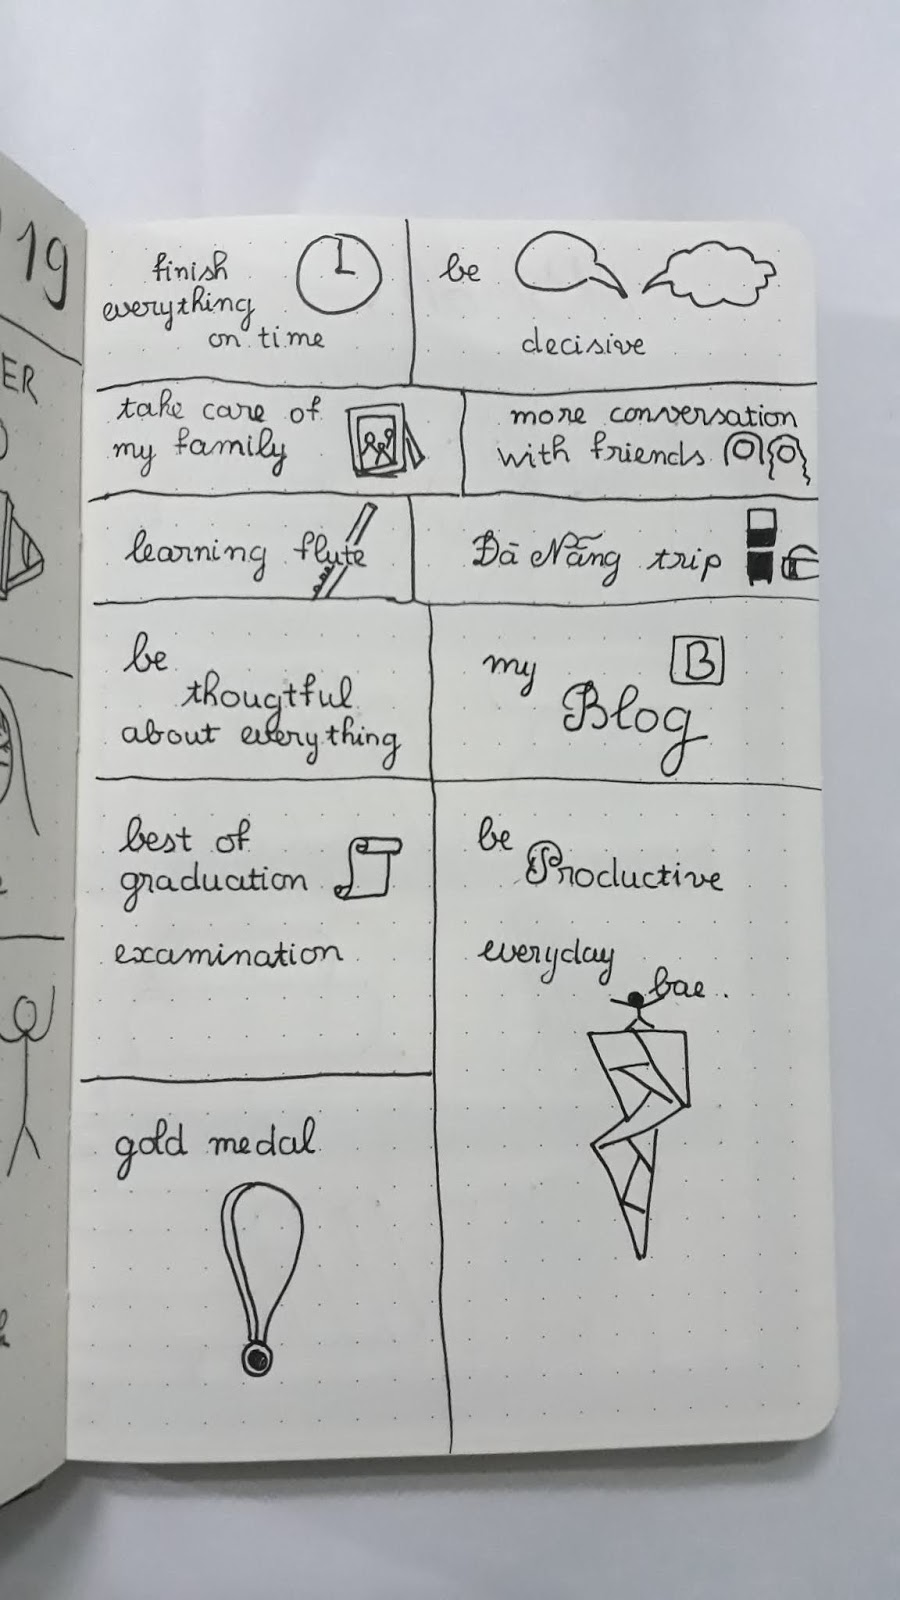 19
ER
finish
everything
on time
be
decisive
take care of
my family
more conversation
with friends
learning flute
Đà Nẵng trip
be
thougtful
about everything
my
B
Blog
best of
graduation
examination
be
Productive
everyday
bae..
gold medal